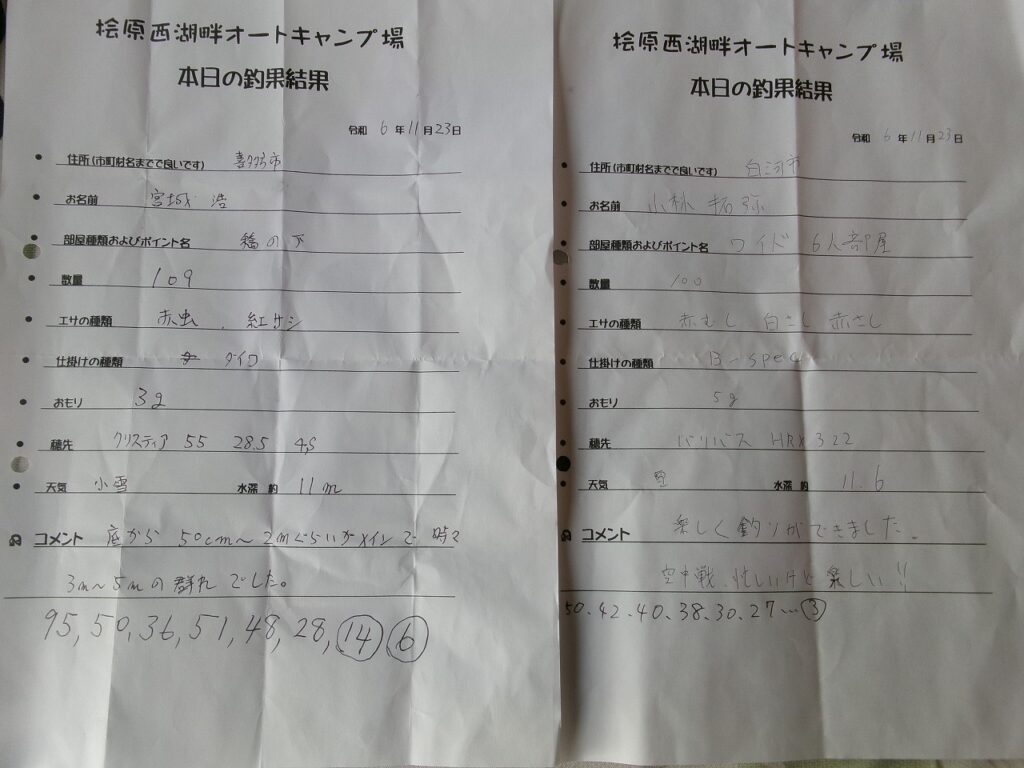 桧原西湖畔オートキャンプ場
本日の釣果結果
令和 6 年 11 月 23 日
住所(市町村名までで良いです) 喜多方市
お名前 宮城 浩
部屋種類およびポイント名 の下
数量 109
エサの種類 赤虫、紅サシ
仕掛けの種類 ダイワ
おもり 3g
穂先 クリスティア 55 28.5 4,5
天気 小雪 水深 約 11m
コメント 底から 50cm～2mぐらいがメインで 時々
3m～5mの群れでした。
95,50,36,51,48,28,14 6
桧原西湖畔オートキャンプ場
本日の釣果結果
令和 6 年 11 月 23 日
住所(市町村名までで良いです) 白河市
お名前 小林 拓弥
部屋種類およびポイント名 ワイド 6人部屋
数量 100
エサの種類 赤むし 白さし 赤さし
仕掛けの種類 B-spec
おもり 5g
穂先 バリバス HRX322
天気 水深 約 11.6
コメント 楽しく釣りができました。
空中戦、忙しいけど楽しい!!
50、42、40、38、30、27…3